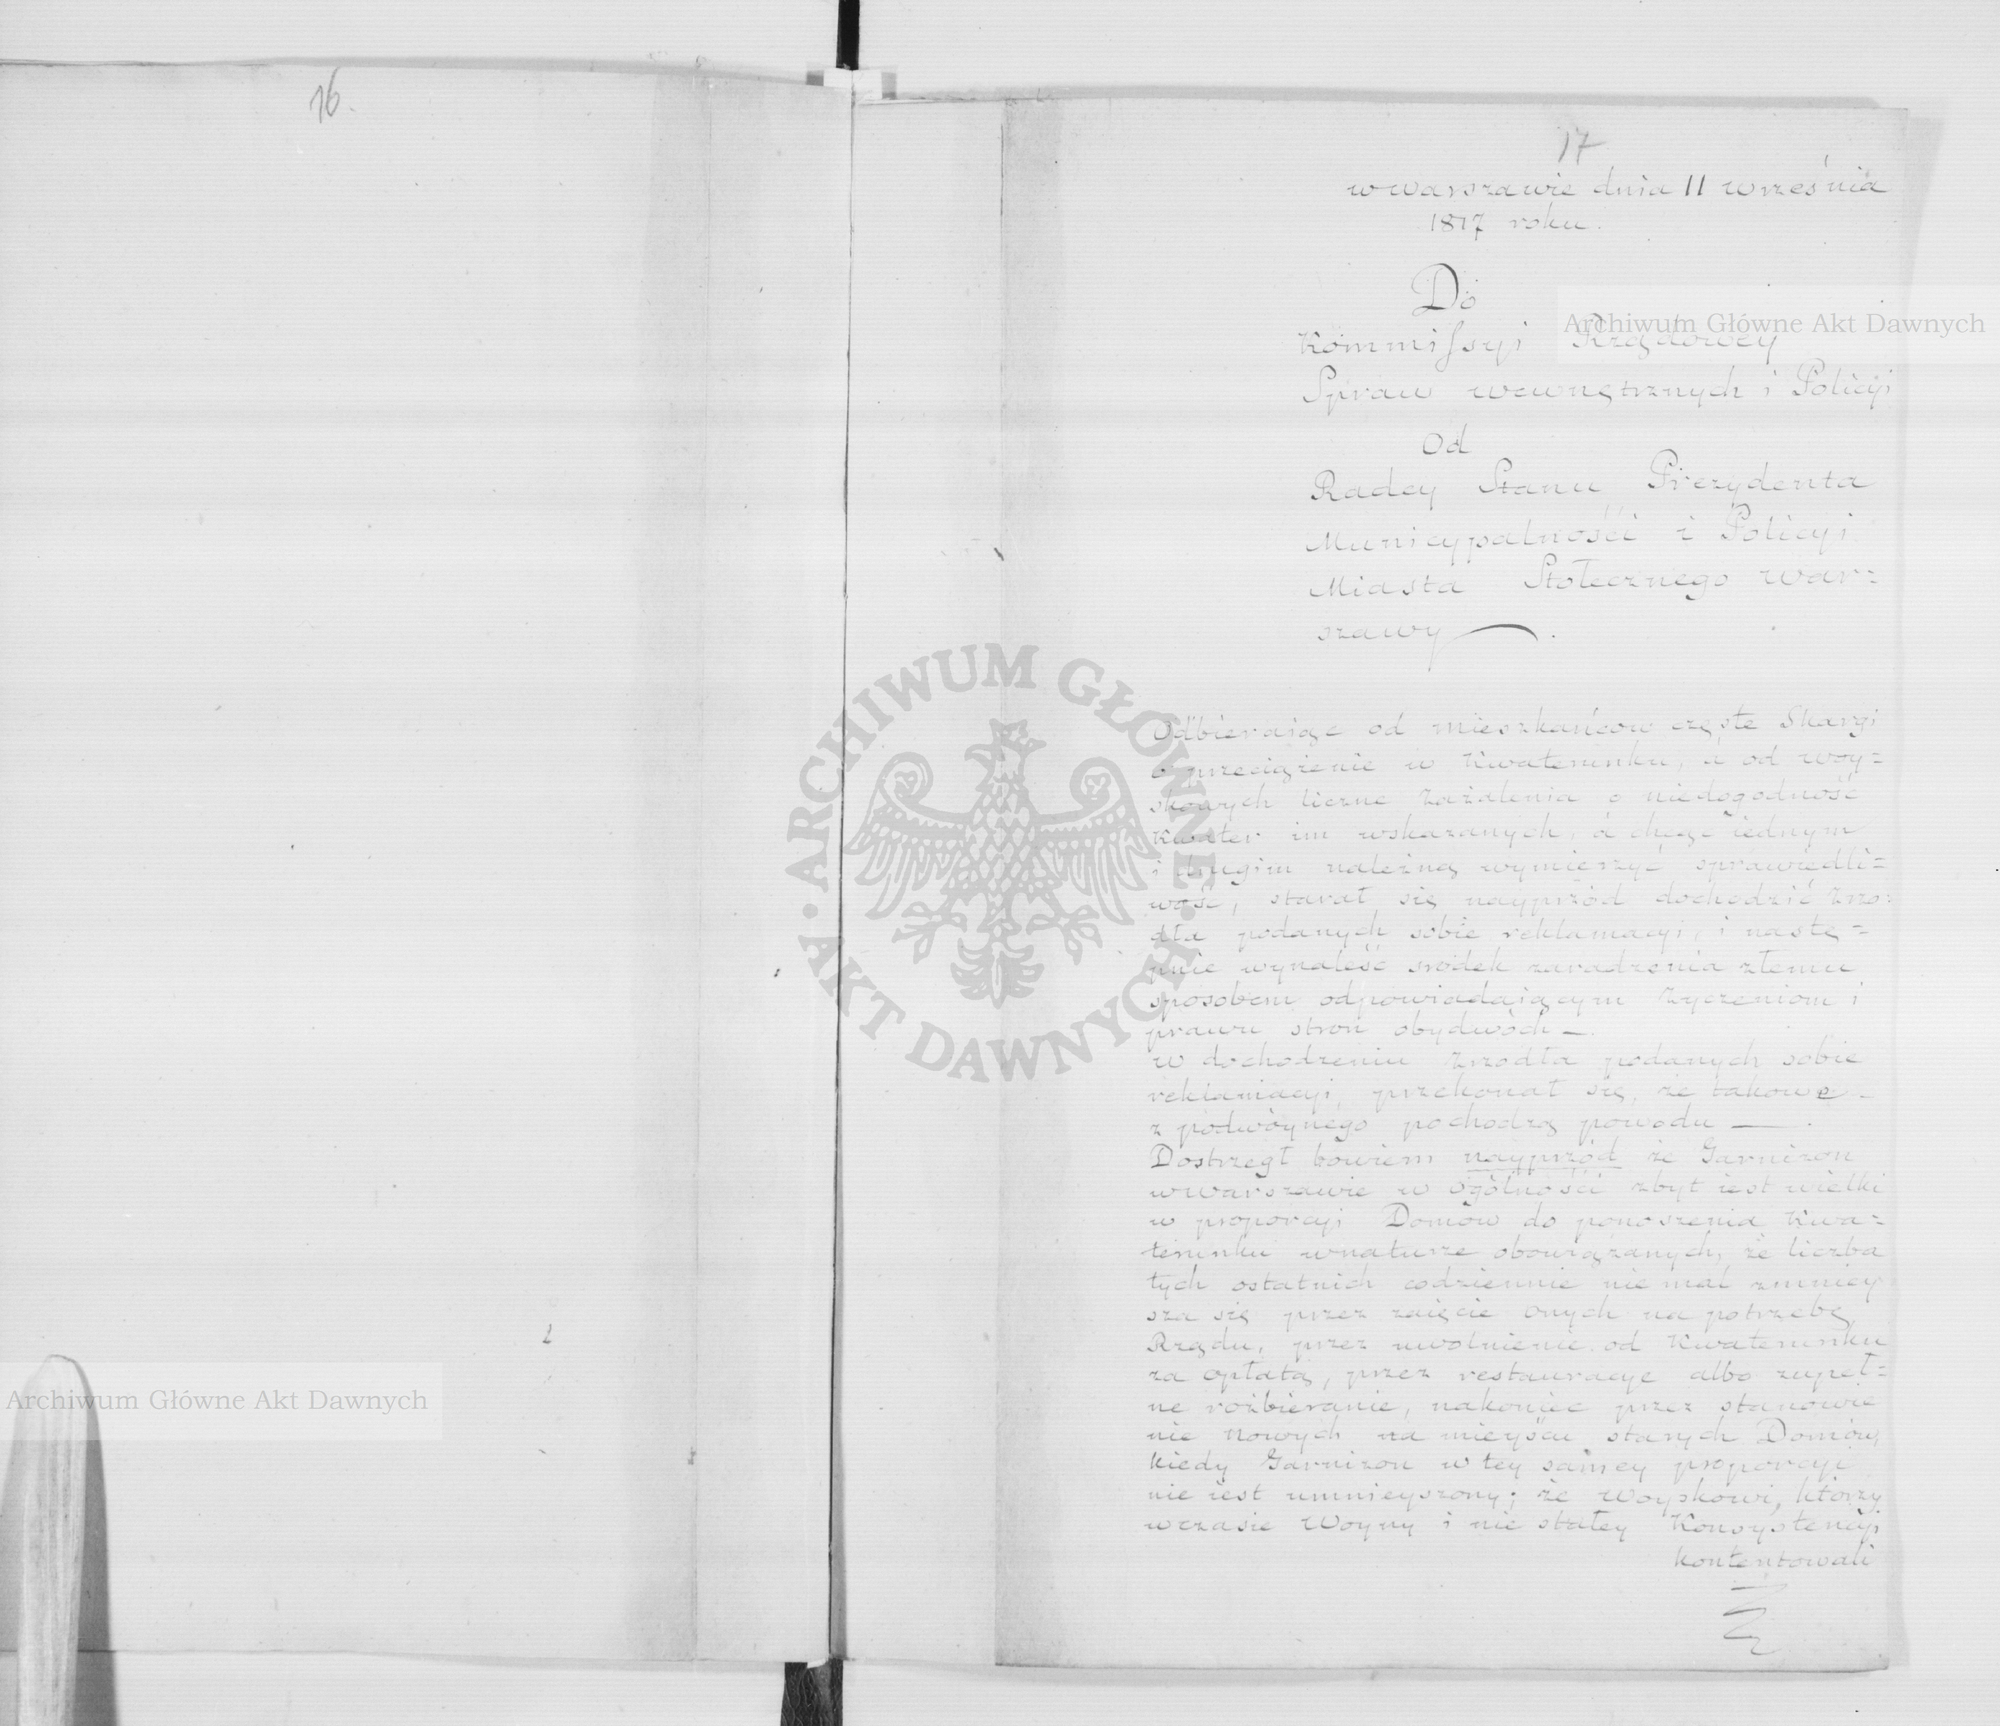 16.
17
w warszawie dnia 11 września
1817 roku.
Do
Kommissyi Rządowey
Spraw wewnętrznych i Policyi
Od
Radcy Stanu Prezydenta
Municypalności i Policyi
Miasta Stołecznego War=
szawy
Odbieraiąc od mieszkańcow częste Skargi
o przeciążenie w Kwaterunku, a od woy=
skowych liczne Zażalenia o niedogodność
Kwater im wskazanych, a chcąc iednym
i drugim należną wymierzyć sprawiedli=
wość, starał się nayprzód dochodzić Zrzo=
dła podanych sobie reklamacyi, i nastę=
pnie wynaleść srodek zaradzenia złemu
sposobem odpowiadaiącym Zyczeniom i
prawu stron obydwóch –.
w dochodzeniu Zrzodła podanych sobie
reklamacyi, przekonał się, że takowe –
z podwóynego pochodzą powodu –.
Dostrzegł bowiem nayprzód że Garnizon
w warszawie w ogólności zbyt iest wielki
w proporcyi Domów do ponoszenia Kwa=
terunku wnaturze obowiązanych, że liczba
tych ostatnich codziennie nie mal zmniey
sza się przez zaięcie onych na potrzebę
Rządu, przez uwolnienie od Kwaterunku
za opłatą, przez restauracye albo zupeł=
ne rozbieranie, nakoniec przez stanowie
nie nowych na mieyscu starych Domów,
kiedy Garnizon w tey samey proporcyi
nie iest umnieyszony; że woyskowi, którzy
wczasie Woyny i nie stałey Konsystencyi
kontentowali
Archiwum Główne Akt Dawnych
Archiwum Główne Akt Dawnych
ARCHIWUM GŁÓWNE
AKT DAWNYCH